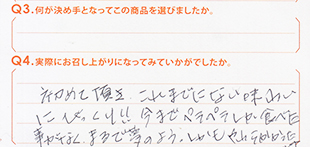 Q3.何が決め手となってこの商品を選びましたか。
Q4.実際にお召し上がりになってみていかがでしたか。
初めて頂き、これまでにない味わい
にびっくり!!今までペラペラしか食べた
事がなく、まるで夢のよう。しかもやわらかかった